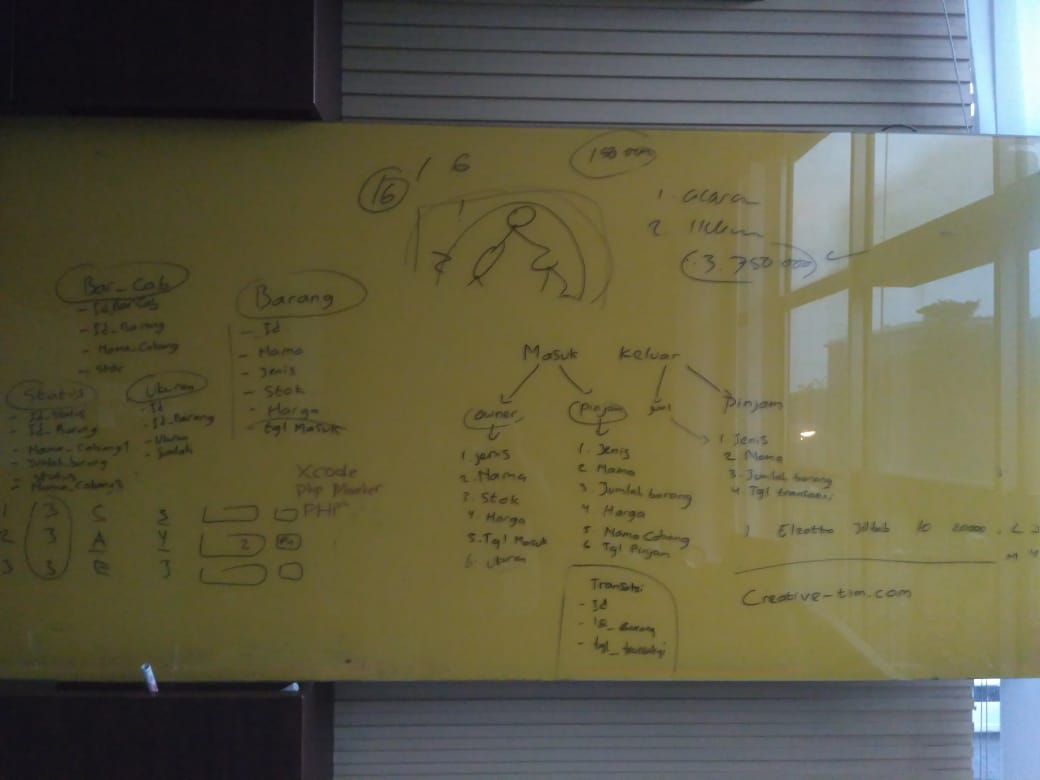 16 / 6
150 000
1. acara
2.
3.750 000
Bar_Cab
- Id_BarCab
- Id_Barang
- Nama_Cabang
- Stok
Barang
- Id
- Nama
- Jenis
- Stok
- Harga
- tgl Masuk
Status
- Id_Status
- Id_Barang
- Nama_Cabang1
- Jumlah_barang
- Status
- Nama_Cabang2
Ukuran
- Id
- Id_Barang
- Ukuran
- Jumlah
Xcode
PHP
1 3 S 2
2 3 A 4 2
3 3 E 3
Masuk Keluar
owner pinjam jual Pinjam
1. jenis
2. Nama
3. Stok
4. Harga
5. Tgl Masuk
6. Ukuran
1. Jenis
2. Nama
3. Jumlah barang
4 Harga
5 Nama Cabang
6 Tgl Pinjam
1 Jenis
2. Nama
3. Jumlah barang
4. Tgl transaksi
Transaksi
- Id
- Id_Barang
- tgl_transaksi
1 Elzatta Jilbab 10 20000
Creative-tim.com